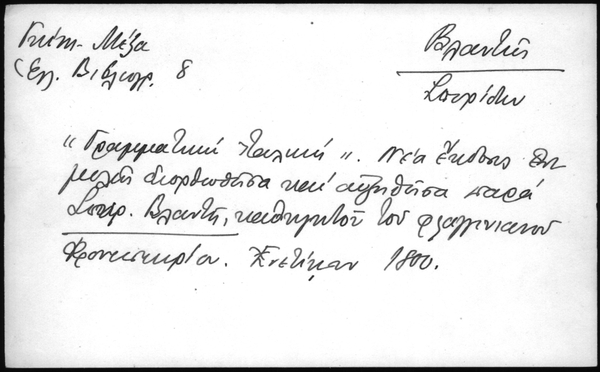 Γκίνη - Μέξα
(Ελλ. Βιβλιογρ. 8
Βλαντής
Σπυρίδων
"Γραμματική Ιταλική". Νέα έκδοσις επι
μελώς διορθωθείσα καί αυξηθείσα παρά
Σπυρ. Βλαντή, καθηγητού του φλαγγινιανού
Φροντιστηρίου. Ενετίησιν 1800.